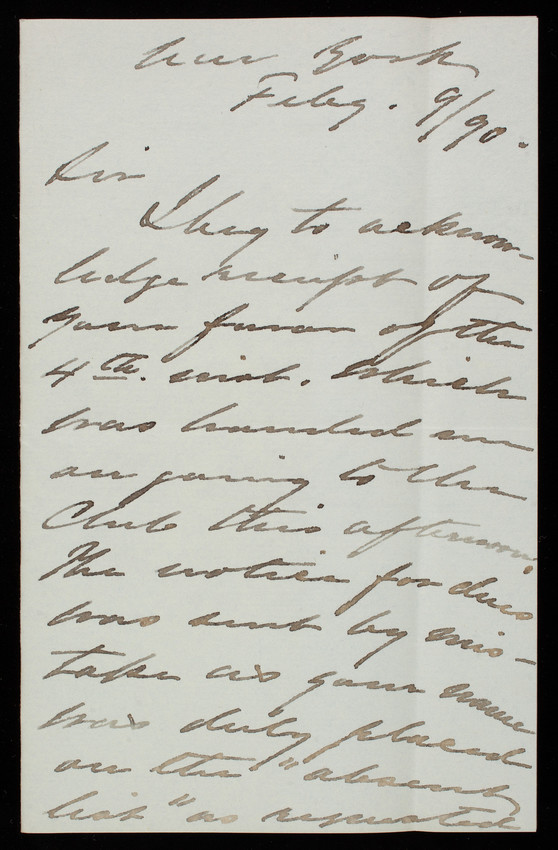 New York
Feby. 9/90.
Sir
I beg to acknow-
ledge receipt of
your favor of the
4th. inst. which
was handed me
on going to the
Club this afternoon.
The notice for dues
was sent by mis-
take as your name
was duly placed
on the "absent
list" as requested